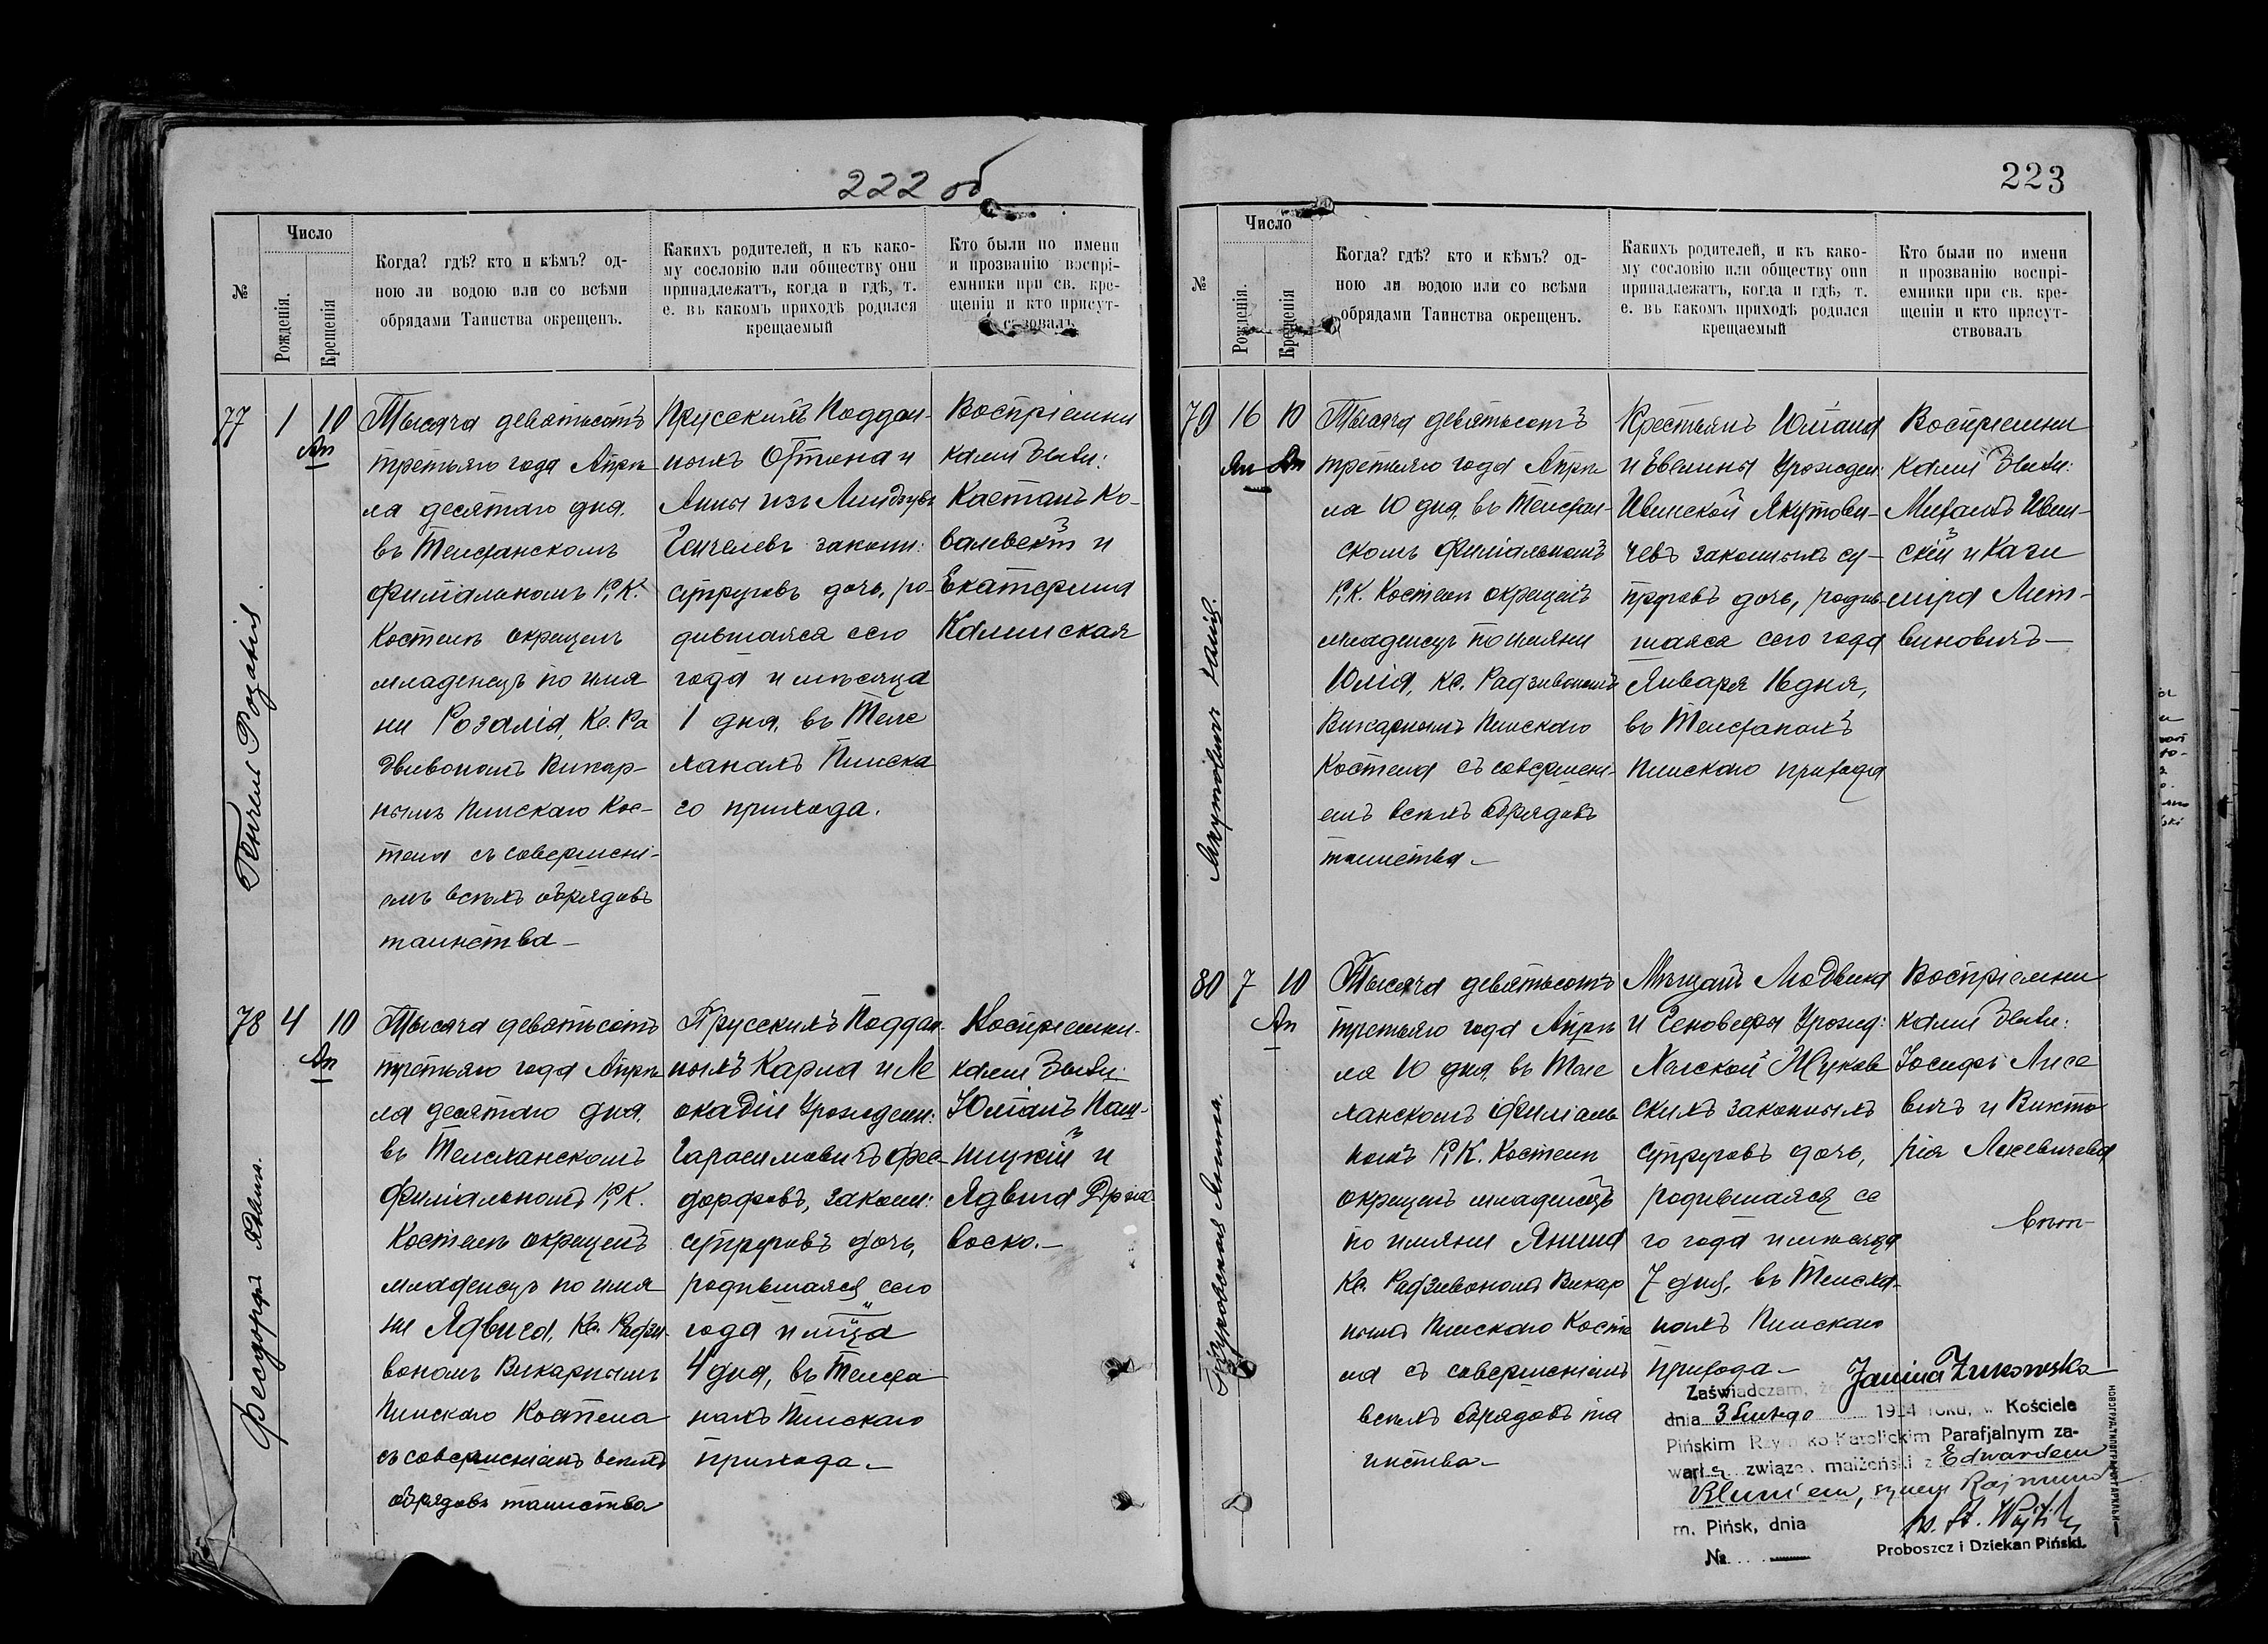 222 об
№
Число
Рожденія.
Крещенія
Когда? гдѣ? кто и кѣмъ? од-
ною ли водою или со всѣми
обрядами Таинства окрещенъ.
Какихъ родителей, и къ како-
му сословію или обществу они
принадлежатъ, когда и гдѣ, т.
е. въ какомъ приходѣ родился
крещаемый
Кто были по имени
и прозванію воспрі-
емники при св. кре-
щеніи и кто присут-
ствовалъ
77
1
10
Ап
Генчель Розалія
Тысяча девятьсотъ
третьяго года Апрѣ
ля десятаго дня,
въ Телеханскомъ
Филіальномъ Р. К.
Костелѣ окрещенъ
младенецъ по имя
ни Розалія, Кс. Ра
дзивономъ Викар-
нымъ Пинскаго Кос-
тела съ совершені-
емъ всѣхъ обрядовъ
таинства —
Прусскихъ Поддан-
ныхъ Оттона и
Анны изъ
Генчелевъ законн:
супруговъ дочь, ро-
дившаяся сего
года и мѣсяца
1 дня, въ Теле
ханахъ Пинска
го прихода.
Воспріемни
ками были:
Каетанъ Ко-
и
Екатерина
Калинская
78
4
10
Ап
Ядвига.
Тысяча девятьсотъ
третьяго года Апрѣ
ля десятаго дня,
въ Телеханскомъ
Филіальномъ Р. К.
Костелѣ окрещенъ
младенецъ по имя
ни Ядвига, Кс. Радзи-
вономъ Викарнымъ
Пинскаго Костела
съ совершеніемъ всѣхъ
обрядовъ таинства
Прусскихъ Поддан-
ныхъ Карла и Ле
окадіи Урожденн:
Гарасимовичъ Фее-
дорфовъ, законн:
супруговъ дочь,
родившаяся сего
года и мца
4 дня, въ Телеха
нахъ Пинскаго
прихода. —
Воспріемни-
ками были:
Юліанъ
и
Ядвига
223
№
Число
Рожденія.
Крещенія
Когда? гдѣ? кто и кѣмъ? од-
ною ли водою или со всѣми
обрядами Таинства окрещенъ.
Какихъ родителей, и къ како-
му сословію или обществу они
принадлежатъ, когда и гдѣ, т.
е. въ какомъ приходѣ родился
крещаемый
Кто были по имени
и прозванію воспрі-
емники при св. кре-
щеніи и кто присут-
ствовалъ
79
16
10
Ап Ап
Якутовичъ
Тысяча девятьсотъ
третьяго года Апрѣ
ля 10 дня, въ Телехан-
скомъ Филіальномъ
Р. К. Костелѣ окрещенъ
младенецъ по имяни
Юлія, Кс. Радзивономъ
Викарнымъ Пинскаго
Костела съ совершені-
емъ всѣхъ обрядовъ
таинства —
Крестьянъ Юліана
и Евелины Урожден:
Ивинской Якутови-
чевъ законныхъ су-
пруговъ дочь, родив-
шаяся сего года
Января 16 дня,
въ Телеханахъ
Пинскаго прихода
Воспріемни
ками были:
Михаилъ Ивин-
скій и Кази
міра Лит-
виновичъ —
80
7
10
Ап
Жуковская Янина.
Тысяча девятьсотъ
третьяго года Апрѣ
ля 10 дня, въ Теле
ханскомъ Филіаль
номъ Р. К. Костелѣ
окрещенъ младенецъ
по имяни Янина
Кс. Радзивономъ Викар
нымъ Пинскаго Косте
ла съ совершеніемъ
всѣхъ обрядовъ та
инства —
Мѣщанъ Людвика
и Геновефы Урожд:
Жуков
скихъ законныхъ
супруговъ дочь,
родившаяся се
го года и мѣсяца
7 дня, въ Телеха-
нахъ Пинскаго
прихода —
Воспріемни
ками были:
Іосифъ Лисе
вичъ и Викто
рія
Janina Żukowska
Zaświadczam, że
dnia 3 Lutego 1924 roku, w Kościele
Pińskim Rzymsko Katolickim Parafjalnym za-
warła związek małżeński z Edwardem
synem Rajmunda
m. Pińsk, dnia
№
Proboszcz i Dziekan Piński.